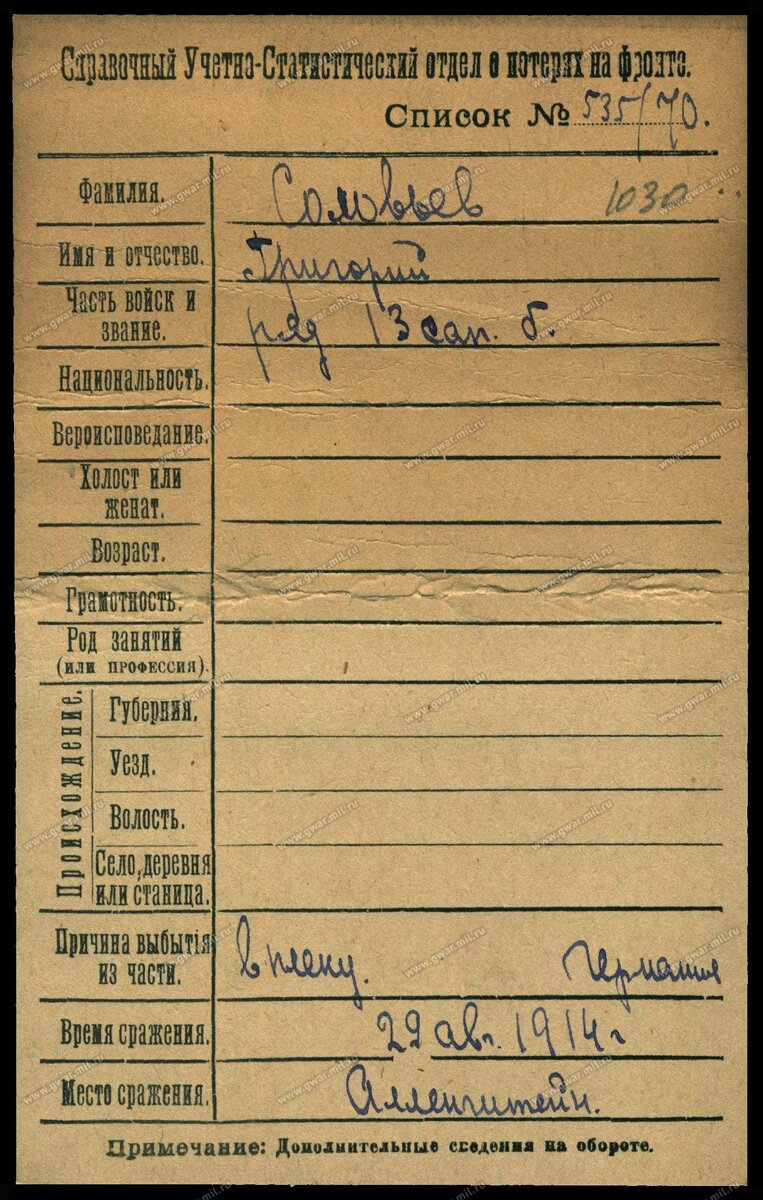 Справочный Учетно-Статистический отдел о потерях на фронте.
Список № 535/70.
Фамилия. Соловьев 1030
Имя и отчество. Григорий
Часть войск и
звание. ряд 13 сап. б.
Национальность.
Вероисповедание.
Холост или
женат.
Возраст.
Грамотность.
Род занятий
(или профессия).
Происхождение.
Губерния.
Уезд.
Волость.
Село, деревня
или станица.
Причина выбытія
из части. в плену. Германия
Время сражения. 29 авг. 1914 г
Место сражения. Алленштейн.
Примечание: Дополнительные сведения на обороте.
www.gwar.mil.ru